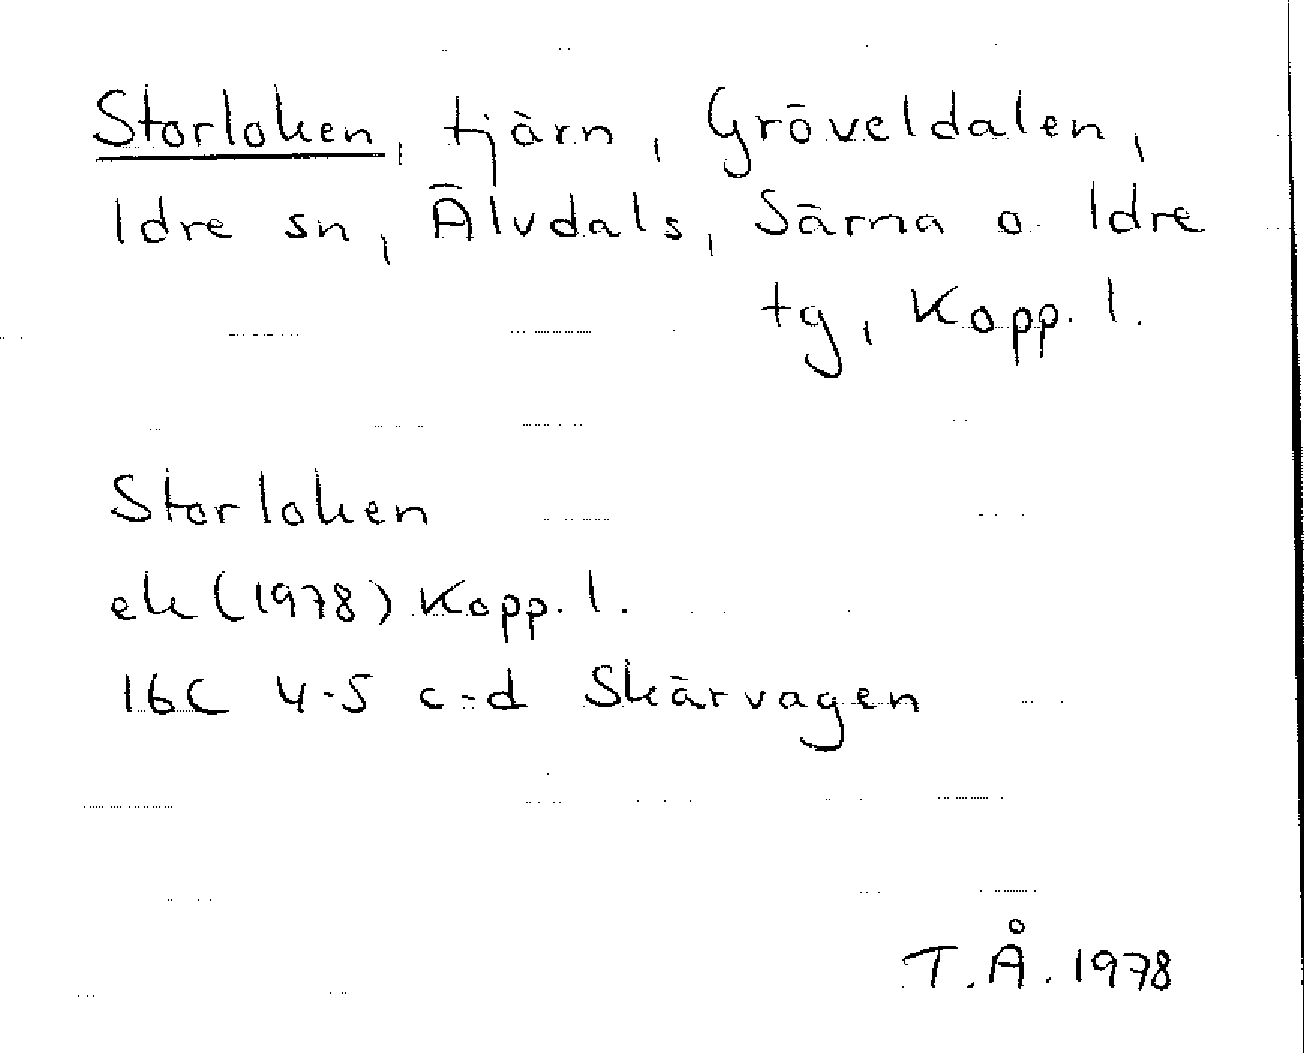 Storloken, tjärn, Gröveldalen,
Idre sn, Älvdals, Särna o Idre
tg, Kopp. l.
Storloken
ek (1978) Kopp. l.
16C 4-5 c-d Skärvagen
T.Å. 1978